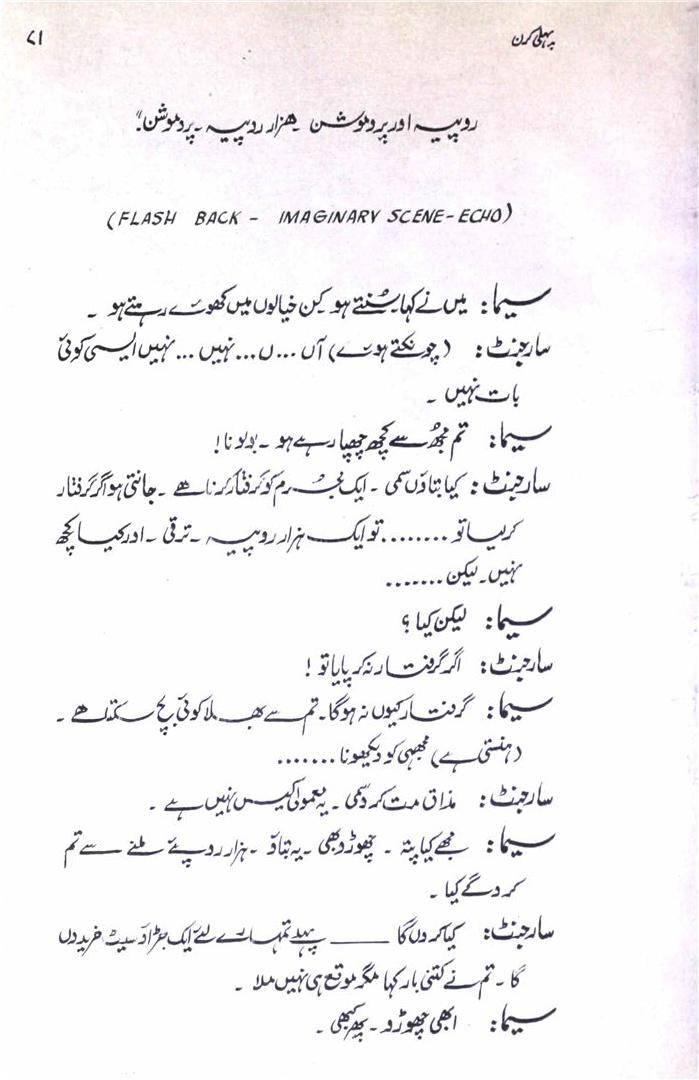 پہلی کرن
۷۱
روپیہ اور پروموشن ۔ ھزار روپیہ ۔ پروموشن“
(FLASH BACK - IMAGINARY SCENE-ECHO)
سیما: میں نے کہا سُنتے ہو کن خیالوں میں کھوئے رہتے ہو ۔
سارجنٹ: (چونکتے ہوئے) آں ... ں ... نہیں ... نہیں ایسی کوئی
بات نہیں ۔
سیما: تم مجھُ سے کچھ چھپا رہے ہو ۔ بولو نا !
سارجنٹ: کیا بتاؤں سمی ۔ ایک مُجرم کو گرفتار کرنا ھے ۔ جانتی ہو اگر گرفتار
کر لیا تو ........ تو ایک ہزار روپیہ ۔ ترقی ۔ اور کیا کچھ
نہیں ۔ لیکن .......
سیما: لیکن کیا ؟
سارجنٹ: اگر گرفتار نہ کر پایا تو !
سیما: گرفتار کیوں نہ ہو گا ۔ تم سے بھلا کوئی بچ سکتا ھے ۔
(ہنستی ہے) مجھی کو دیکھو نا .......
سارجنٹ: مذاق مت کرو سمی ۔ یہ معمولی کیس نہیں ہے ۔
سیما: مجھے کیا پتہ ۔ چھوڑو بھی ۔ یہ بتاؤ ۔ ہزار روپئے ملنے سے تم
کرو گے کیا ۔
سارجنٹ: کیا کروں گا ____ پہلے تمہارے لئے ایک جڑاؤ سیٹ خریدوں
گا ۔ تم نے کتنی بار کہا مگر موقع ہی نہیں ملا ۔
سیما: ابھی چھوڑو ۔ پھر کبھی ۔